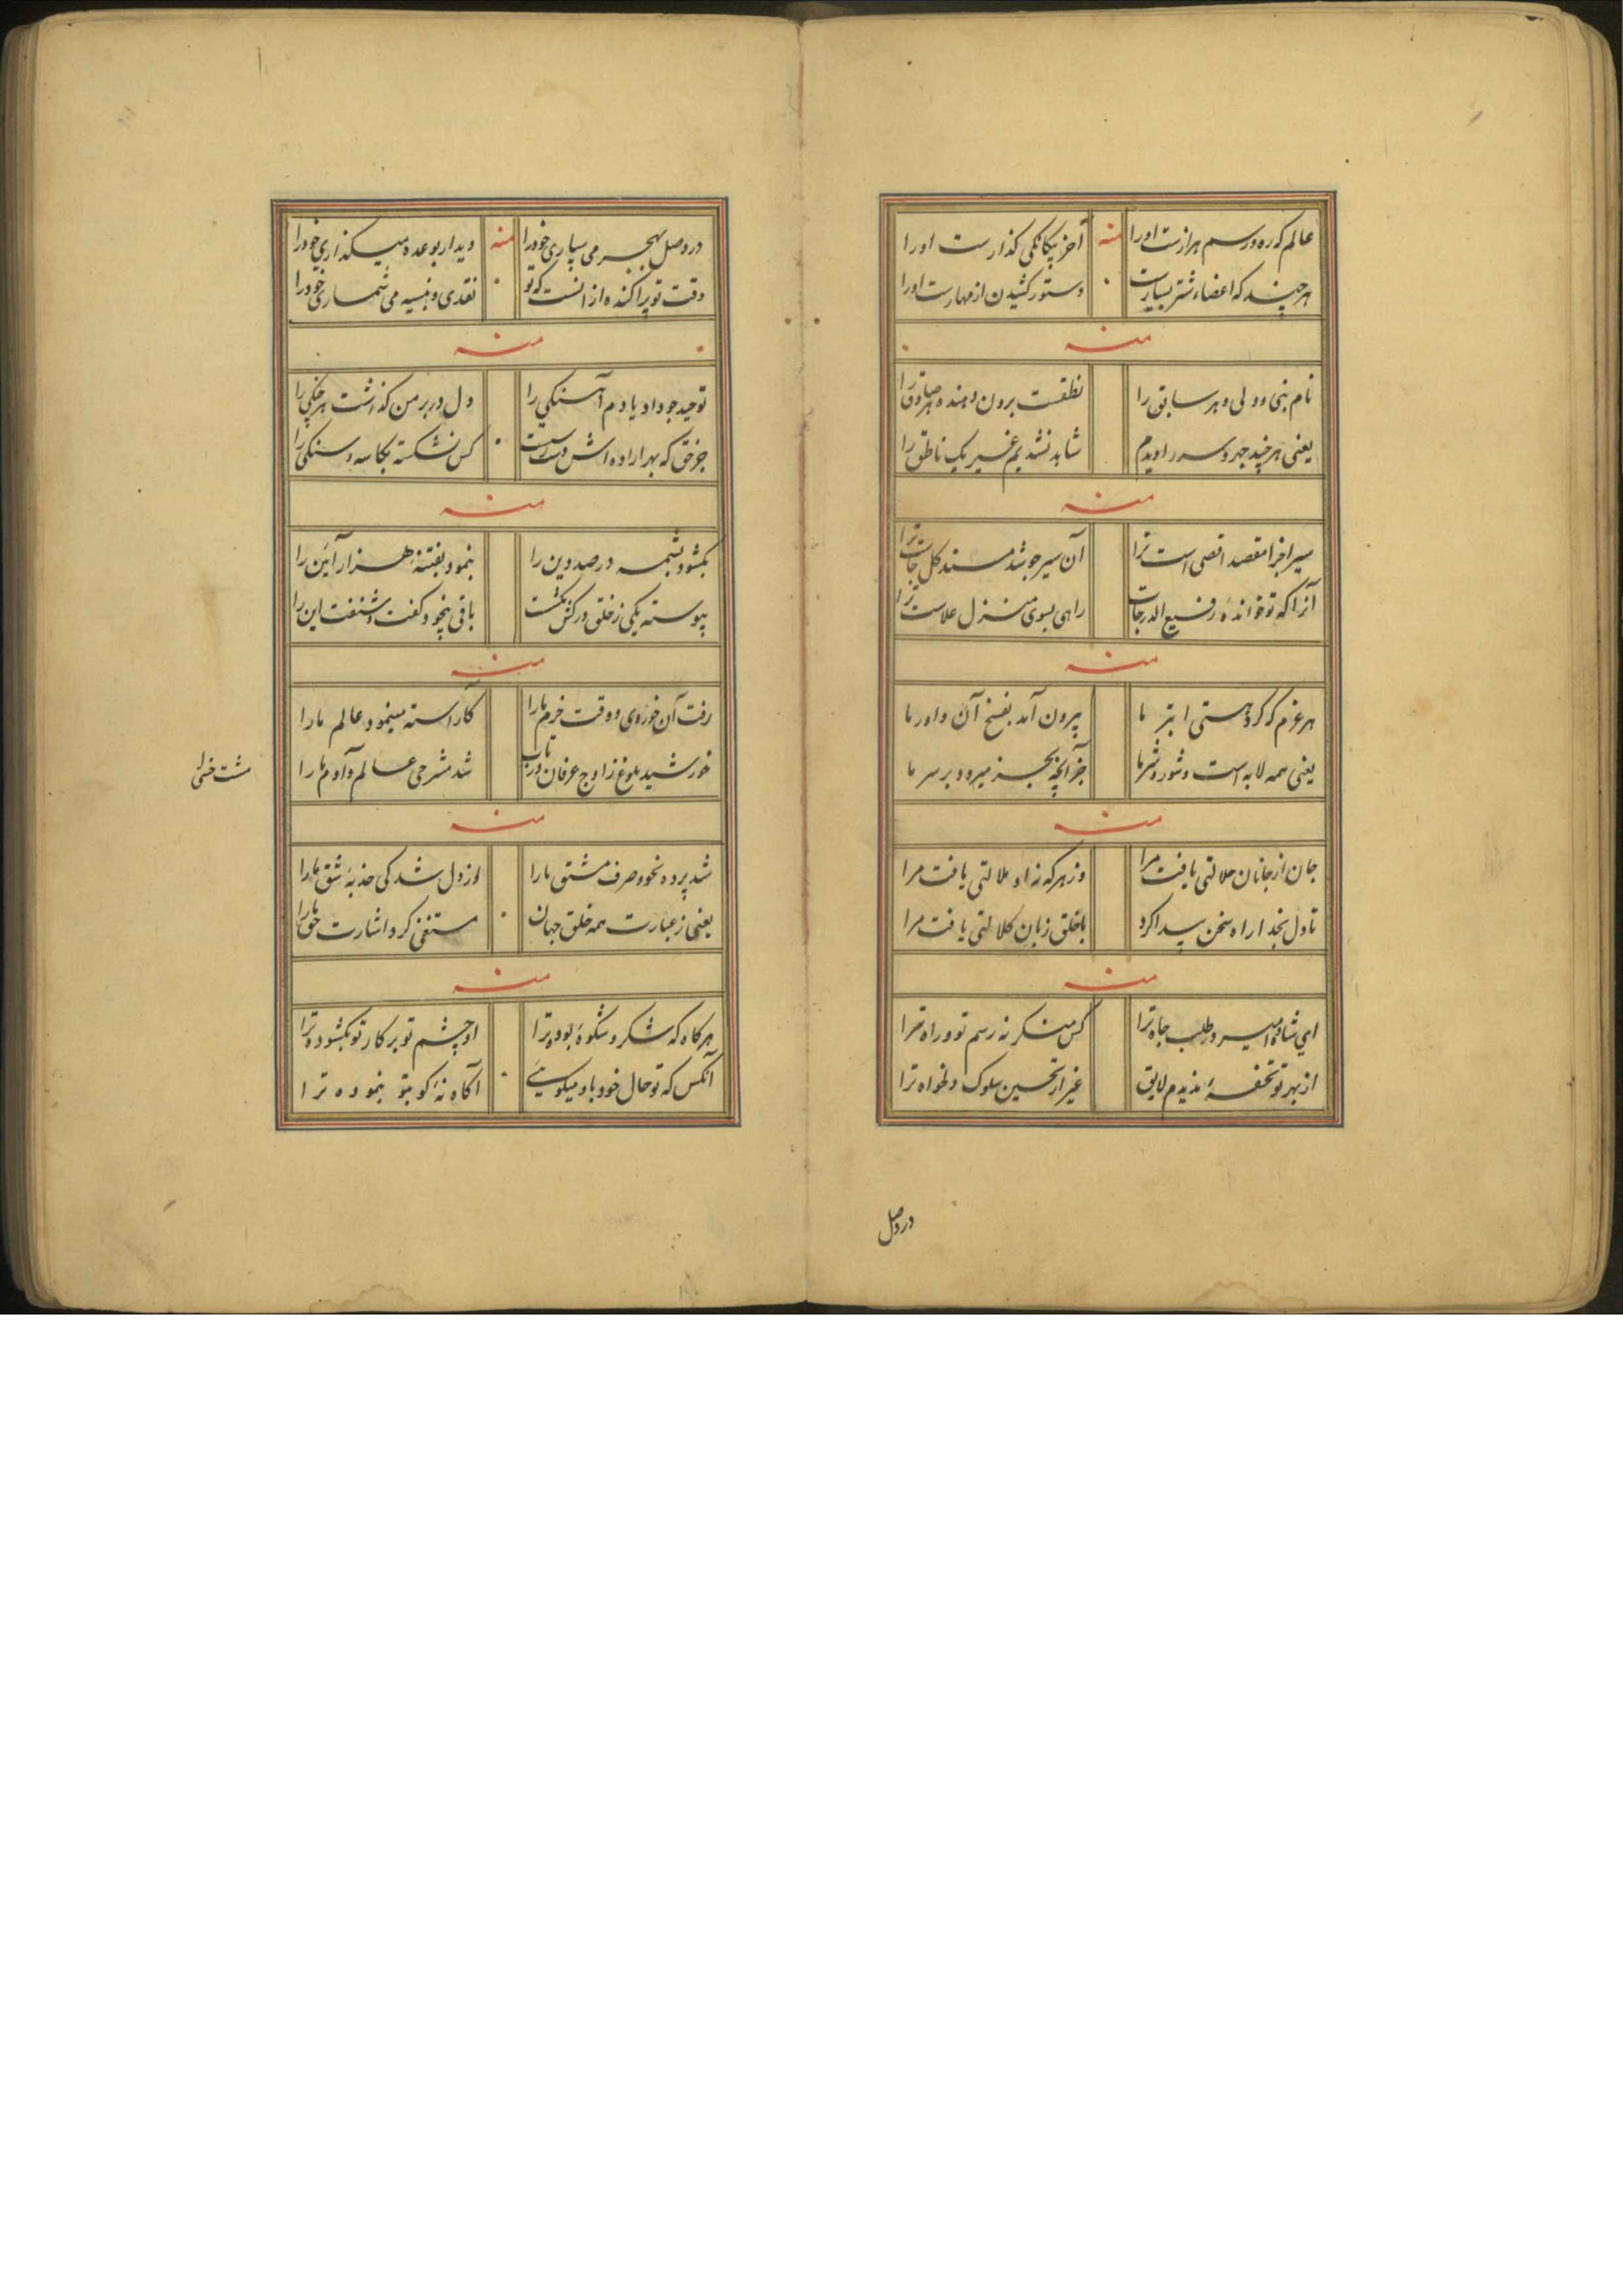 عالم که ره و رسم هزارست اورا منه آخر بیکانکی کذارست اورا
هر چند که اعضاء شتر بسیارست دستور کشیدن از مهارست اورا
منه
نام نبی و ولی و هر سابق را نطقست برون دهنده هر صادق را
یعنی هر چند جهر و سر را دیدم شاهد نشدیم غیر یک ناطق را
منه
سیر اجزا مقصد اقصی است ترا آن سیر چو شد مسند کل جاست ترا
آنرا که تو خواندهٔ رفیع الدرجات راهی بسوی منزل علاست ترا
منه
هر عزم که کرد هستی ابتر ما بیرون آمد بفسخ آن داور ما
یعنی همه لابه است و شور و شر ما جز آنچه بعجز میرود بر سر ما
منه
جان از جانان حلالتی یافت مرا وز هر که نه او ملالتی یافت مرا
تا دل بخدا راه سخن پیدا کرد با خلق زبان کلالتی یافت مرا
منه
ای شاه و امیر در طلب جاه ترا کس منکر نه رسم تو و راه ترا
از بهر تو تحفهٔ ندیدم لایق غیر از تحسین سلوک دلخواه ترا
در وصل
در وصل بهجر می سپاری خود را منه دیدار بوعده میکذاری خود را
وقت تو پراکنده از انست که تو نقدی و بنسیه می شماری خود را
منه
توحید چو داد یادم آهنکی را دل در بر من کذاشت هر جنکی را
جز حق که بهر اراده اش دست رسیست کس نشکسته بکاسه و سنکی را
منه
بکشود بشمه در صد دین را بنمود بفتنه هزار آیین را
پیوسته یکی ز خلق درکش نکشت باقی بخود گفت و شنفت این را
منه
رفت آن خوروی و وقت خرم ما را کاراسته مینمود عالم ما را
خورشید بلوغ ز اوج عرفان در تاب شد مشرحی عالم و آدم ما را
منه
شد پرده نحو و صرف مشتق ما را از دل شد کی جذبهٔ شق ما را
یعنی ز عبارت همه خلق جهان مستغنی کرد اشارت حق ما را
منه
هر کاه که شکر و شکوهٔ بوده ترا او چشم تو بر کار تو بکشوده ترا
آنکس که تو حال خود باو میکویی آکاه نهٔ کو بتو بنموده ترا